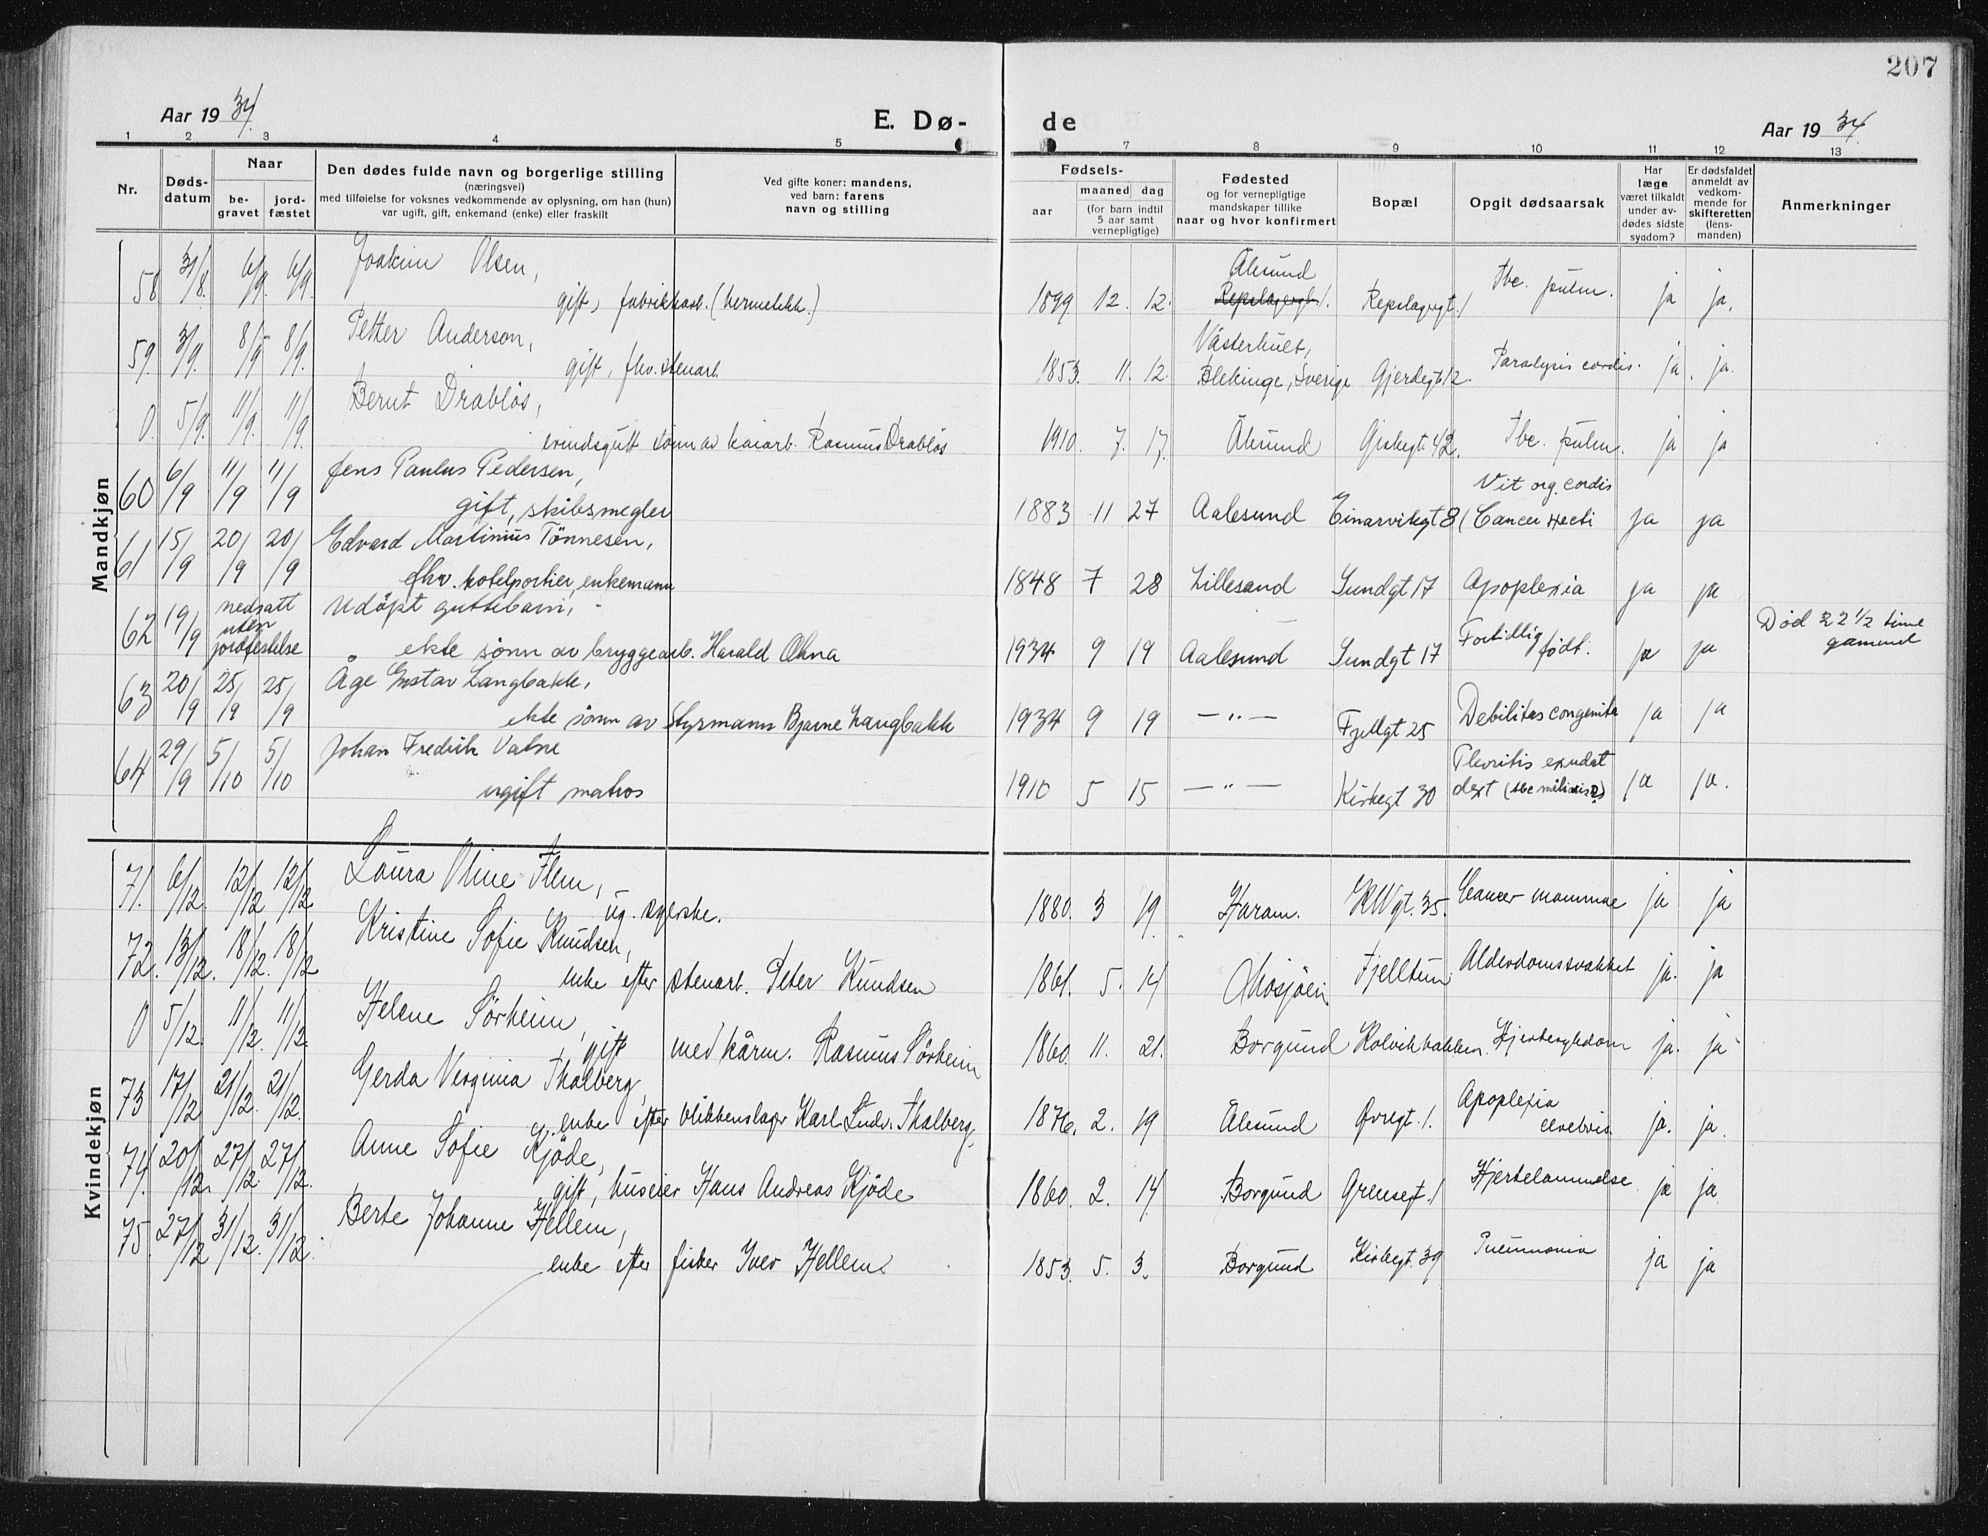 207
Aar 1934.
E. Dø-
de
Aar 1934
1 2 3 4 5 7 8 9 10 11 12 13
Nr.
Døds-
datum
Naar
be-
gravet
jord-
fæstet
Den dødes fulde navn og borgerlige stilling
(næringsvei)
med tilføielse for voksnes vedkommende av oplysning, om han (hun)
var ugift, gift, enkemand (enke) eller fraskilt
Ved gifte koner: mandens,
ved barn: farens
navn og stilling
Fødsels-
aar
maaned dag
(for barn indtil
5 aar samt
vernepligtige)
Fødested
og for vernepligtige
mandskaper tillike
naar og hvor konfirmert
Bopæl
Opgit dødsaarsak
Har
læge
været tilkaldt
under av-
dødes sidste
sygdom?
Er dødsfaldet
anmeldt av
vedkom-
mende for
skifteretten
(lens-
manden)
Anmerkninger
Mandkjøn
58 31/8. 6/9. 6/9. Joakim Olsen,
gift, fabrikkarb. (hermetikk.)
1899 12. 12. Ålesund Repslagergt. 1 Tbc. pulm. ja ja.
59 3/9. 8/9. 8/9. Petter Anderson,
gift, fhv. stenarb.
1853. 11. 12. Västerhult,
Blekinge, Sverige Gjerdegt. 12. Paralysis cordis. ja. ja.
0. 5/9. 11/9. 11/9. Bernt Drabløs,
erindsgutt sønn av kaiarb. Rasmus Drabløs
1910. 7. 17. Ålesund 42. Tbc. pulm. ja ja
60 6/9 11/9 11/9 Jens Paulus Pedersen,
gift, skibsmegler
1883 11 27 Aalesund Einarvikgt 8 Vit. org. cordis
(Cancer recti ja ja
61 15/9 20/9 20/9 Edvard Martinius Tönnesen,
fhv. hotelportier, enkemann
1848 7 28 Lillesand Sundgt 17 Apoplexia ja ja
62 19/9 nedsatt
uten
jordfestelse
Udöpt guttebarn,
ekte sönn av bryggearb. Harald Ohna
1934 9 19 Aalesund Sundgt 17 Fortidlig
født. ja ja
Død 22 1/2 time
gammel
63 20/9 25/9 25/9 Åge Gustav Langbakk,
ekte sönn av Styrmann Bjarne Langbakk
1934 9 19 — „ — Fjellgt 25 Debilitas congenita ja ja
64 29/9 5/10 5/10 Johan Fredrik Vatne
ugift matros
1910 5 15 — „ — Kirkegt 30 Plevritis exudat
dext (tbc miliaris?) ja ja.
Kvindekjøn
71. 6/12. 12/12 12/12 Laura Oline Flem,
ug. syerske.
1880. 3 19. Haram. KWgt. 35. Cancer mammae ja ja
72. 13/12. 18/12. 18/12 Kristine Sofie Knudsen,
enke efter stenarb. Peter Knudsen
1861. 5. 14 Mosjöen Fjelltun Alderdomssvakhet ja. ja
0 5/12. 11/12. 11/12. Helene Sörheim,
gift med kårm. Rasmus Sörheim
1860. 11. 21. Borgund Kolvikbakken. Hjertesykdom ja. ja
73 17/12 21/12. 21/12. Gerda Verginia Thalberg,
enke efter blikkenslager Karl Ludv. Thalberg.
1876. 2. 19 Ålesund Øvregt. 1. Apoplexia
cerebris ja. ja.
74. 20/12. 27/12. 27/12. Anne Sofie Kjöde,
gift, huseier Hans Andreas Kjöde
1860. 2. 14 Borgund Grensegt. 1 Hjertelammelse ja ja.
75. 27/12 31/12. 31/12. Berte Johanne Hellem,
enke efter fisker Iver Hellem.
1853. 5. 3. Borgund Kirkegt. 39 Pneumonia ja ja